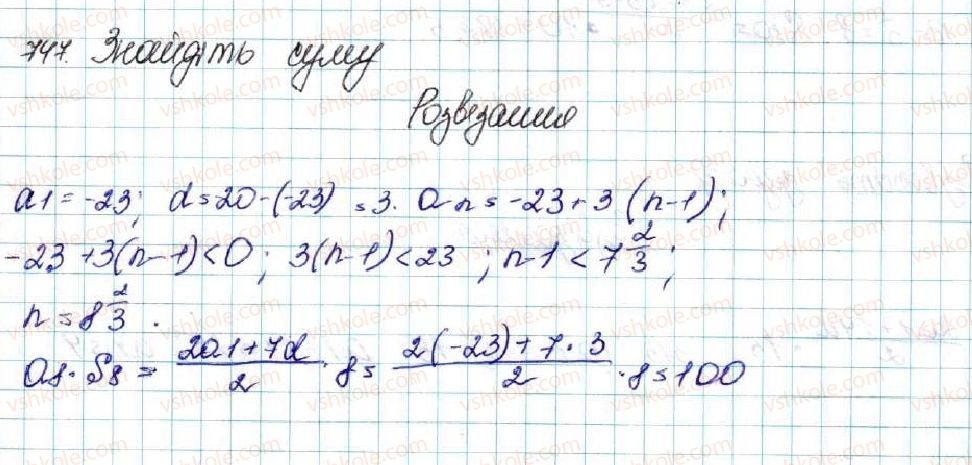 747. Знайдіть суму
Розвезання
a1 = -23; d = 20 - (-23) = 3. a n = -23 + 3 (n-1);
-23 + 3(n-1) < 0; 3(n-1) < 23; n-1 < 7 2/3;
n = 8 2/3.
a8. S8 = (2a1 + 7d)/2 · 8 = (2(-23) + 7 · 3)/2 · 8 = 100